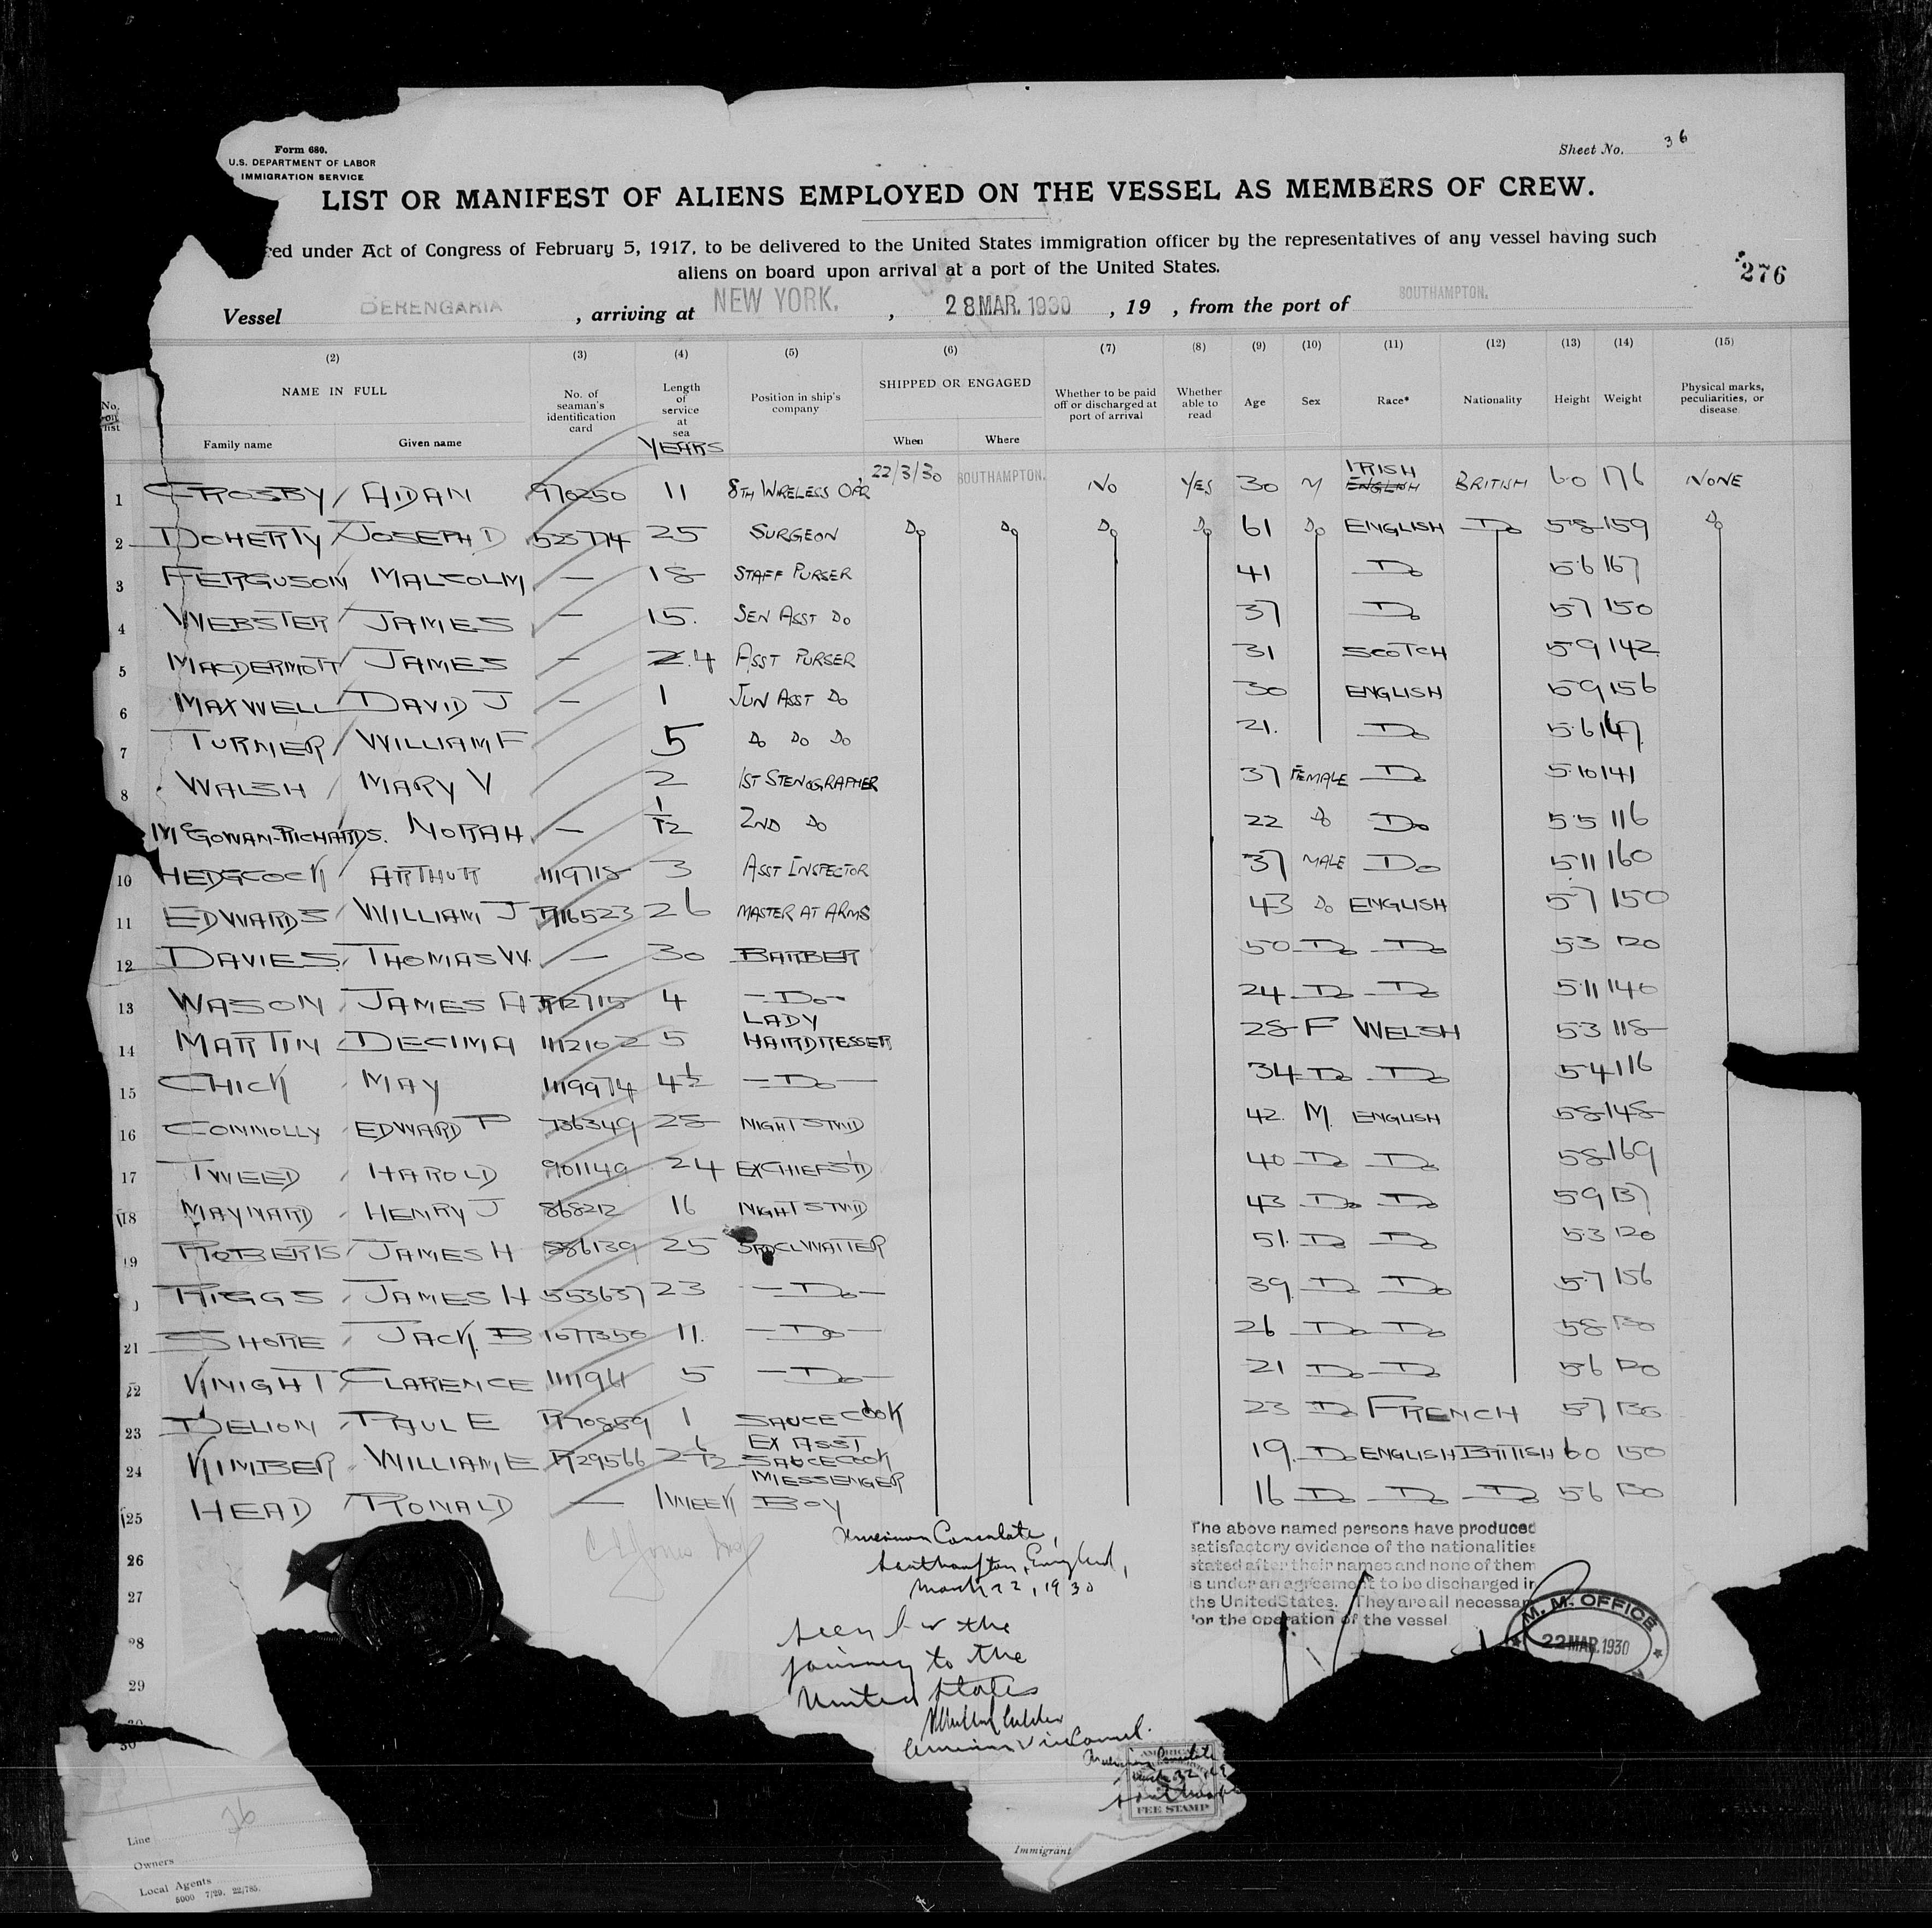 Form 680.
U.S. DEPARTMENT OF LABOR
IMMIGRATION SERVICE
Sheet No. 36
LIST OR MANIFEST OF ALIENS EMPLOYED ON THE VESSEL AS MEMBERS OF CREW.
red under Act of Congress of February 5, 1917, to be delivered to the United States immigration officer by the representatives of any vessel having such
aliens on board upon arrival at a port of the United States.
276
Vessel BERENGARIA , arriving at NEW YORK. , 28 MAR. 1930 , 19 , from the port of SOUTHAMPTON.
(2) (3) (4) (5) (6) (7) (8) (9) (10) (11) (12) (13) (14) (15)
No. on list NAME IN FULL Family name Given name No. of seaman's identification card Length of service at sea YEARS Position in ship's company SHIPPED OR ENGAGED When Where Whether to be paid off or discharged at port of arrival Whether able to read Age Sex Race* Nationality Height Weight Physical marks, peculiarities, or disease
1 CROSBY AIDAN 970250 11 8TH WIRELESS OP'R 22/3/30 SOUTHAMPTON. NO YES 30 M IRISH ENGLISH BRITISH 6.0 176 NONE
2 DOHERTY JOSEPH D 523774 25 SURGEON Do Do Do Do 61 Do ENGLISH Do 5.8 159 Do
3 FERGUSON MALCOLM — 18 STAFF PURSER 41 Do 5.6 167
4 WEBSTER JAMES — 15. SEN ASST Do 37 Do 5.7 150
5 MACDERMOTT JAMES — 2.4 ASST PURSER 31 SCOTCH 5.9 142
6 MAXWELL DAVID J — 1 JUN ASST Do 30 ENGLISH 5.9 156
7 TURNER WILLIAM F 5 Do Do Do 21. Do 5.6 147
8 WALSH MARY V 2 1ST STENOGRAPHER 37 FEMALE Do 5.10 141
McGOWAN-RICHARDS. NORAH — 1/12 2ND Do 22 Do Do 5.5 116
10 HEDGCOCK ARTHUR 1119718 3 ASST INSPECTOR 37 MALE Do 5.11 160
11 EDWARDS WILLIAM J R16523 26 MASTER AT ARMS 43 Do ENGLISH 5.7 150
12 DAVIES THOMAS W. — 30 BARBER 50 Do Do 5.3 120
13 WASON JAMES A 4 —Do— 24 Do Do 5.11 140
14 MARTIN DECIMA 1112102 5 LADY HAIRDRESSER 28 F WELSH 5.3 118
15 CHICK MAY 1119974 4½ —Do— 34 Do Do 5.4 116
16 CONNOLLY EDWARD P 736349 28 NIGHT STWD 42. M. ENGLISH 5.8 148
17 TWEED HAROLD 901149 24 EX CHIEF STD 40 Do Do 5.8 169
18 MAYNARD HENRY J 868212 16 NIGHT STWD 43 Do Do 5.9 137
19 ROBERTS JAMES H 886139 25 WAITER 51. Do Do 5.3 120
RIGGS JAMES H 553637 23 —Do— 39 Do Do 5.7 156
21 SHORE JACK B 1077350 11. —Do— 26 Do Do 5.8 130
22 KNIGHT CLARENCE 111196 5 —Do— 21 Do Do 5.6 120
23 DELION PAUL E R70859 1 SAUCE COOK 23 Do FRENCH 5.7 136
24 KIMBER WILLIAM E R29566 2 6/12 EX ASST SAUCE COOK 19. Do ENGLISH BRITISH 6.0 150
25 HEAD RONALD — 1 WEEK MESSENGER BOY 16 Do Do Do 5.6 130
26
27
28
29
30
American Consulate,
Southampton, England,
March 22, 1930
Seen for the
journey to the
United States
American Vice Consul.
The above named persons have produced
satisfactory evidence of the nationalities
stated after their names and none of them
is under an agreement to be discharged in
the United States. They are all necessary
for the operation of the vessel
M. M. OFFICE
22 MAR. 1930
American Consulate
FEE STAMP
Immigrant
Line 26
Owners
Local Agents
5000 7/29. 22/785.